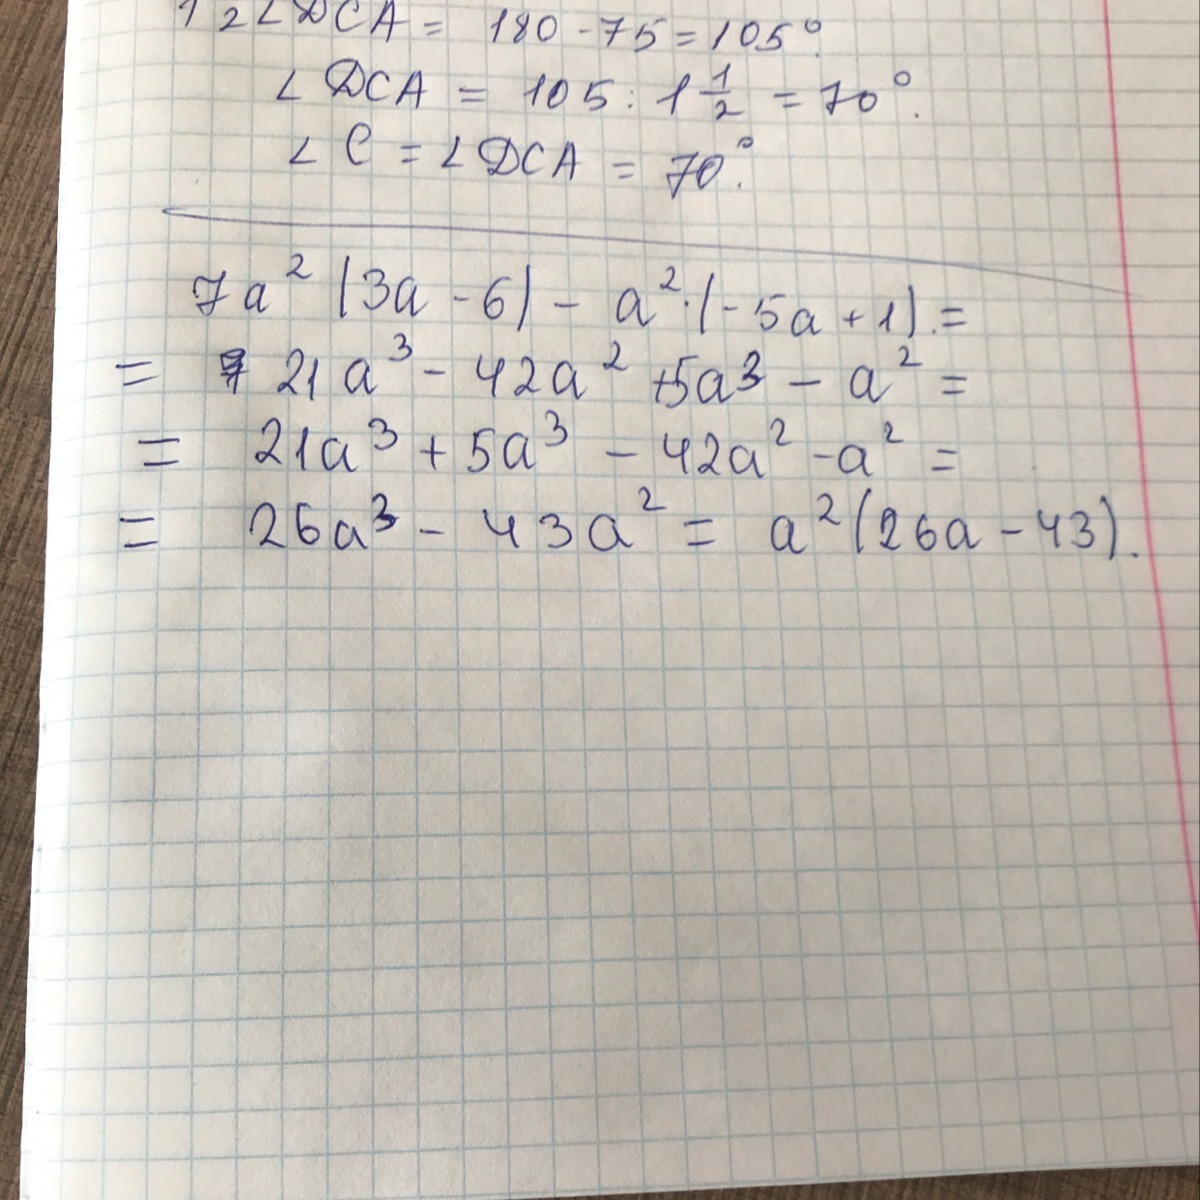 1 1/2 ∠DCA = 180 - 75 = 105°.
∠DCA = 105 : 1 1/2 = 70°.
∠C = ∠DCA = 70°.
7a² (3a - 6) - a²·(-5a + 1).=
= 21a³ - 42a² +5a³ - a² =
= 21a³ + 5a³ - 42a² - a² =
= 26a³ - 43a² = a²(26a - 43).